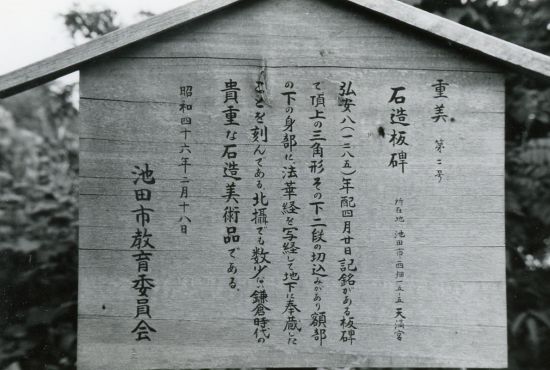 重美 第二号
石造板碑
所在地 池田市西畑一五五 天満宮
弘安八(一二八五)年配四月廿日記銘がある板碑
で頂上の三角形その下二段の切込みがあり額部
の下の身部に法華経を写経して地下に奉蔵した
ことを刻んである。北摂でも数少ない鎌倉時代の
貴重な石造美術品である。
昭和四十六年二月十八日
池田市教育委員会